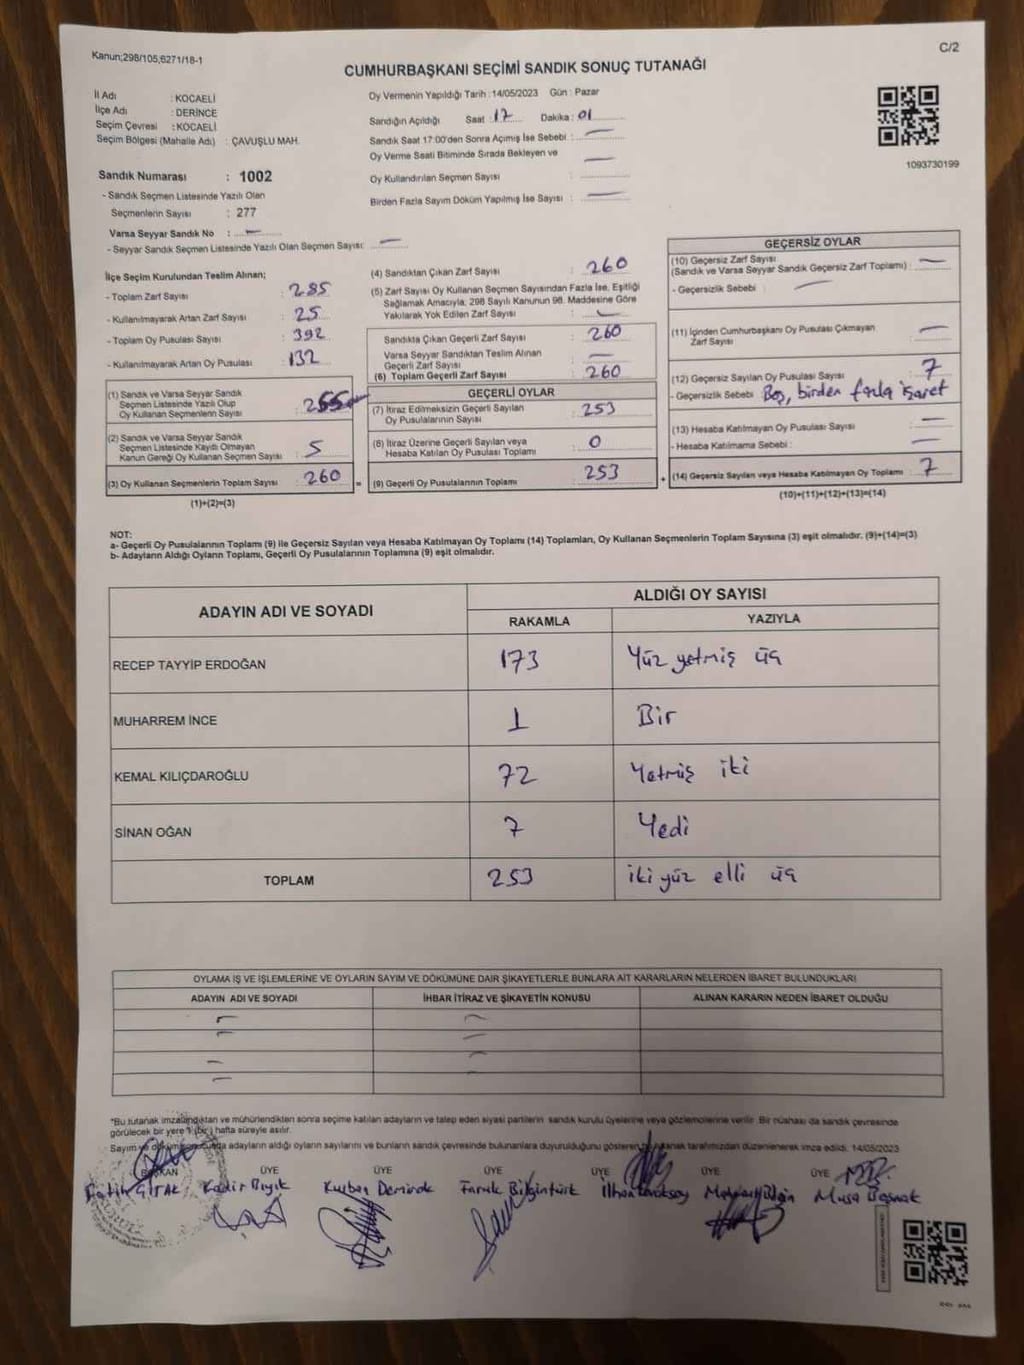 Kanun;298/105,6271/18-1
C/2
CUMHURBAŞKANI SEÇİMİ SANDIK SONUÇ TUTANAĞI
İl Adı : KOCAELİ
İlçe Adı : DERİNCE
Seçim Çevresi : KOCAELİ
Seçim Bölgesi (Mahalle Adı) : ÇAVUŞLU MAH.
Oy Vermenin Yapıldığı Tarih : 14/05/2023 Gün : Pazar
Sandığın Açıldığı Saat : 17 Dakika : 01
Sandık Saat 17:00'den Sonra Açımış İse Sebebi : —
Oy Verme Saati Bitiminde Sırada Bekleyen ve —
Oy Kullandırılan Seçmen Sayısı :
Birden Fazla Sayım Döküm Yapılmış İse Sayısı : —
1093730199
Sandık Numarası : 1002
- Sandık Seçmen Listesinde Yazılı Olan
Seçmenlerin Sayısı : 277
Varsa Seyyar Sandık No : —
- Seyyar Sandık Seçmen Listesinde Yazılı Olan Seçmen Sayısı: —
İlçe Seçim Kurulundan Teslim Alınan;
- Toplam Zarf Sayısı : 285
- Kullanılmayarak Artan Zarf Sayısı : 25
- Toplam Oy Pusulası Sayısı : 392
- Kullanılmayarak Artan Oy Pusulası : 132
(1) Sandık ve Varsa Seyyar Sandık
Seçmen Listesinde Yazılı Olup
Oy Kullanan Seçmenlerin Sayısı : 255
(2) Sandık ve Varsa Seyyar Sandık
Seçmen Listesinde Kayıtlı Olmayan
Kanun Gereği Oy Kullanan Seçmen Sayısı : 5
(3) Oy Kullanan Seçmenlerin Toplam Sayısı : 260
(1)+(2)=(3)
(4) Sandıktan Çıkan Zarf Sayısı : 260
(5) Zarf Sayısı Oy Kullanan Seçmen Sayısından Fazla İse, Eşitliği
Sağlamak Amacıyla, 298 Sayılı Kanunun 98. Maddesine Göre
Yakılarak Yok Edilen Zarf Sayısı : —
Sandıkta Çıkan Geçerli Zarf Sayısı : 260
Varsa Seyyar Sandıktan Teslim Alınan
Geçerli Zarf Sayısı : —
(6) Toplam Geçerli Zarf Sayısı : 260
GEÇERLİ OYLAR
(7) İtiraz Edilmeksizin Geçerli Sayılan
Oy Pusulalarının Sayısı : 253
(8) İtiraz Üzerine Geçerli Sayılan veya
Hesaba Katılan Oy Pusulası Toplamı : 0
= (9) Geçerli Oy Pusulalarının Toplamı : 253
GEÇERSİZ OYLAR
(10) Geçersiz Zarf Sayısı
(Sandık ve Varsa Seyyar Sandık Geçersiz Zarf Toplamı) : —
- Geçersizlik Sebebi : —
(11) İçinden Cumhurbaşkanı Oy Pusulası Çıkmayan
Zarf Sayısı : —
(12) Geçersiz Sayılan Oy Pusulası Sayısı : 7
- Geçersizlik Sebebi Boş, birden fazla işaret
(13) Hesaba Katılmayan Oy Pusulası Sayısı : —
- Hesaba Katılmama Sebebi : —
+ (14) Geçersiz Sayılan veya Hesaba Katılmayan Oy Toplamı : 7
(10)+(11)+(12)+(13)=(14)
NOT:
a- Geçerli Oy Pusulalarının Toplamı (9) ile Geçersiz Sayılan veya Hesaba Katılmayan Oy Toplamı (14) Toplamları, Oy Kullanan Seçmenlerin Toplam Sayısına (3) eşit olmalıdır. (9)+(14)=(3)
b- Adayların Aldığı Oyların Toplamı, Geçerli Oy Pusulalarının Toplamına (9) eşit olmalıdır.
ADAYIN ADI VE SOYADI
ALDIĞI OY SAYISI
RAKAMLA YAZIYLA
RECEP TAYYİP ERDOĞAN 173 Yüz yetmiş üç
MUHARREM İNCE 1 Bir
KEMAL KILIÇDAROĞLU 72 Yetmiş iki
SİNAN OĞAN 7 Yedi
TOPLAM 253 iki yüz elli üç
OYLAMA İŞ VE İŞLEMLERİNE VE OYLARIN SAYIM VE DÖKÜMÜNE DAİR ŞİKAYETLERLE BUNLARA AİT KARARLARIN NELERDEN İBARET BULUNDUKLARI
ADAYIN ADI VE SOYADI İHBAR İTİRAZ VE ŞİKAYETİN KONUSU ALINAN KARARIN NEDEN İBARET OLDUĞU
*Bu tutanak imzalandıktan ve mühürlendikten sonra seçime katılan adayların ve talep eden siyasi partilerin sandık kurulu üyelerine veya gözlemcilerine verilir. Bir nüshası da sandık çevresinde
görülecek bir yere 1 (bir) hafta süreyle asılır.
Sayım ve adayların aldığı oyların sayılarını ve bunların sandık çevresinde bulunanlara duyurulduğunu gösteren tutanak tarafımızdan düzenlenerek imza edildi. 14/05/2023
BAŞKAN ÜYE ÜYE ÜYE ÜYE ÜYE ÜYE
Fatih Kadir Bıyık Kurban Demirok Faruk Bilgintürk İlhan Musa Başnak